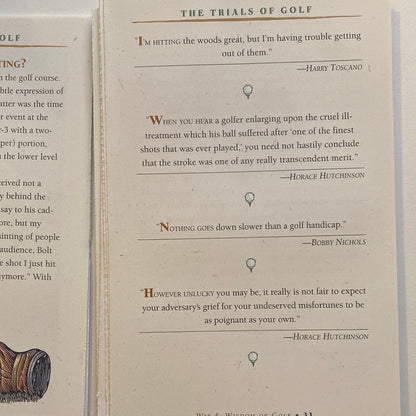 OLF
TING?
n the golf course.
btle expression of
atter was the time
r event at the
r-3 with a two-
per) portion,
n the lower level
ceived not a
y behind the
say to his cad-
ore, but my
inting of people
audience, Bolt
e shot I just hit
ymore." With
THE TRIALS OF GOLF
"I'M HITTING the woods great, but I'm having trouble getting
out of them."
—HARRY TOSCANO
"WHEN YOU HEAR a golfer enlarging upon the cruel ill-
treatment which his ball suffered after 'one of the finest
shots that was ever played,' you need not hastily conclude
that the stroke was one of any really transcendent merit."
—HORACE HUTCHINSON
"NOTHING GOES down slower than a golf handicap."
—BOBBY NICHOLS
"HOWEVER UNLUCKY you may be, it really is not fair to expect
your adversary's grief for your undeserved misfortunes to be
as poignant as your own."
—HORACE HUTCHINSON
WIT & WISDOM OF GOLF • 31